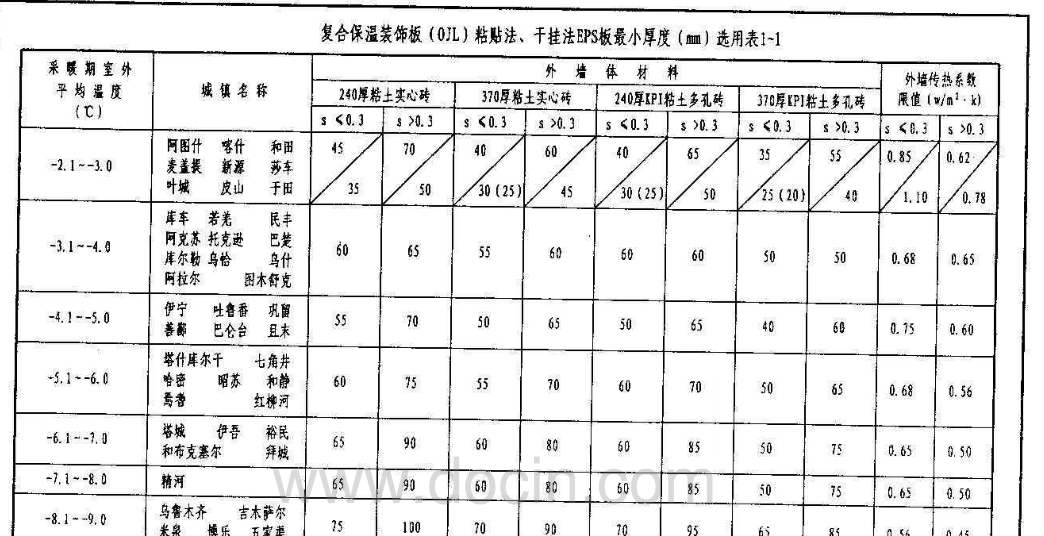 复合保温装饰板(OJL)粘贴法、干挂法EPS板最小厚度(mm)选用表1-1
采暖期室外平均温度(℃) 城镇名称 外墙体材料 外墙传热系数限值(w/m²·k)
240厚粘土实心砖 370厚粘土实心砖 240厚KPI粘土多孔砖 370厚KPI粘土多孔砖
s ≤0.3 s >0.3 s ≤0.3 s >0.3 s ≤0.3 s >0.3 s ≤0.3 s >0.3 s ≤0.3 s >0.3
-2.1--3.0
阿图什 喀什 和田
麦盖提 新源 莎车
叶城 皮山 于田
45 70 40 60 40 65 35 55 0.85 0.62
35 50 30(25) 45 30(25) 50 25(20) 40 1.10 0.78
-3.1--4.0
库车 若羌 民丰
阿克苏 托克逊 巴楚
库尔勒 乌恰 乌什
阿拉尔 图木舒克
60 65 55 60 60 60 50 50 0.68 0.65
-4.1--5.0
伊宁 吐鲁番 巩留
善鄯 巴仑台 且末
55 70 50 65 50 65 40 60 0.75 0.60
-5.1--6.0
塔什库尔干 七角井
哈密 昭苏 和静
焉耆 红柳河
60 75 55 70 60 70 50 65 0.68 0.56
-6.1--7.0
塔城 伊吾 裕民
和布克塞尔 拜城
65 90 60 80 60 85 50 75 0.65 0.50
-7.1--8.0 精河 65 90 60 80 60 85 50 75 0.65 0.50
-8.1--9.0
乌鲁木齐 吉木萨尔
米泉 五家渠
75 100 70 90 70 95 65 85 0.56 0.45
www.docin.com